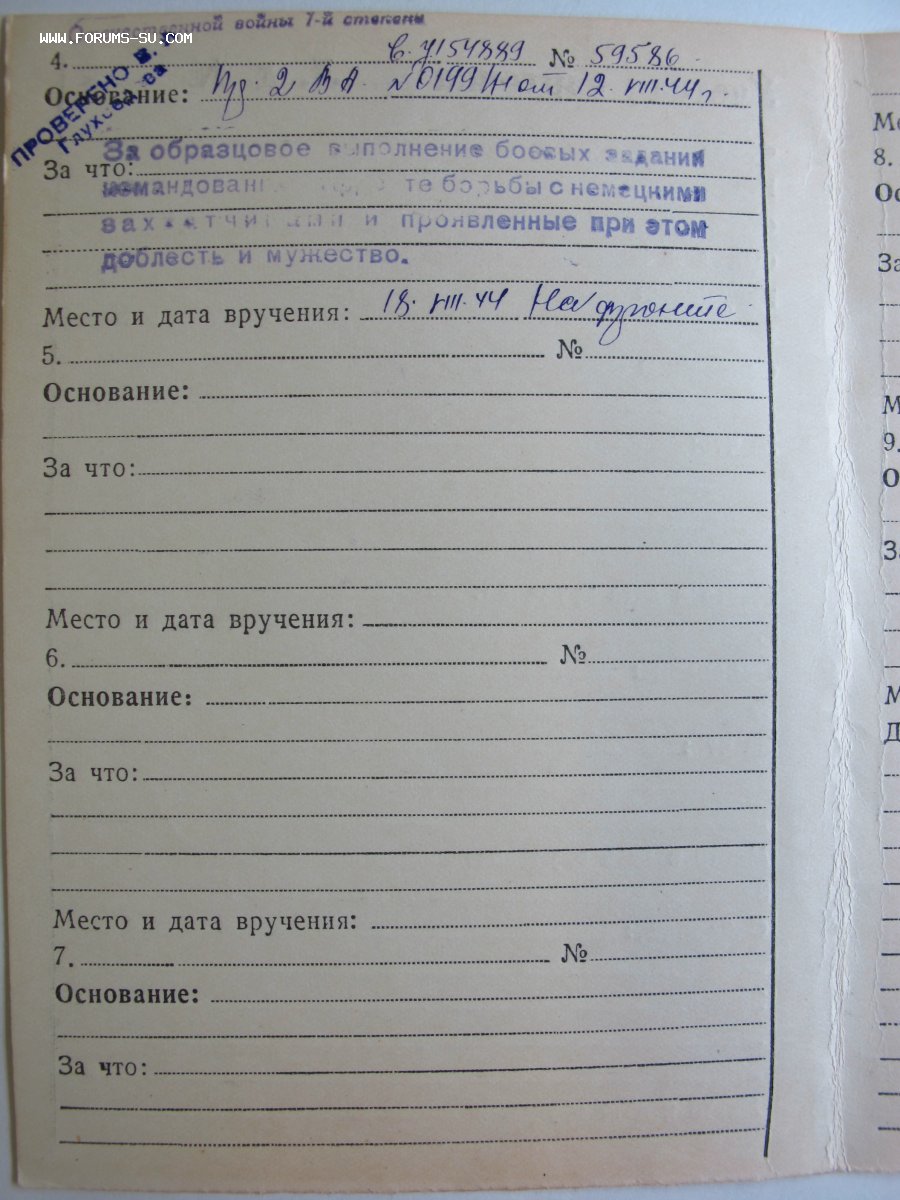 ственной войны 1-й степени
WWW.FORUMS-SU.COM
4. в. у154889 № 59586
ПРОВЕРЕНО В.
Основание: Пр. 2 ВА. №0199/н от 12.VIII.44 г.
За образцовое выполнение боевых заданий
За что:
командован те борьбы с немецкими
захватчиками и проявленные при этом
доблесть и мужество.
Место и дата вручения: 18.VIII.44 На фронте
5. №
Основание:
За что:
Место и дата вручения:
6. №
Основание:
За что:
Место и дата вручения:
7. №
Основание:
За что:
8.
9.